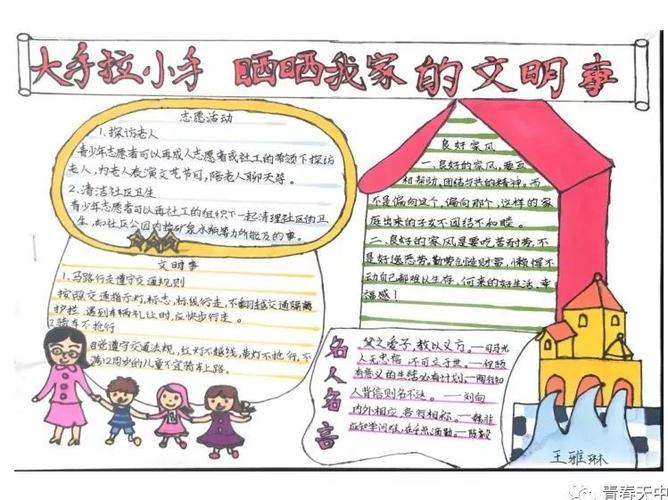 大手拉小手 晒晒我家的文明事
志愿活动
1、探访老人
青少年志愿者可以再成人志愿者或社工的带领下探访
老人，为老人表演文艺节目，陪老人聊天等。
2、清洁社区卫生
青少年志愿者可以再社工的组织下一起清理社区的卫
生，
文明事
1、马路行走遵守交通规则
按照交通指示灯，标志，标线行走，不翻越交通隔离
护栏，遇到车辆礼让时，应快步行走。
2骑车不抢行
自觉遵守交通法规，红灯不越线，黄灯不抢行，不
满12周岁的儿童不宜骑车上路。
良好家风
一、良好的家风，要互
相帮助，团结与共的精神，而
不是偏向这个，偏向那个，这样的家
庭出来的子女不团结不和睦。
二、良好的家风是要吃苦耐劳，不
是好逸恶劳，勤劳创造财富，懒惰不
动自己都难以生存，何来的好生活，幸
福感！
名人名言
父之爱子，教以义方。—司马光
人无忠信，不可立于世。
有意义的生活必有计划，
人背信则名不达。—刘向
内外相应，言行相称。—韩非
应知学问难，在乎点滴勤。—陈毅
王雅琳
青春天中